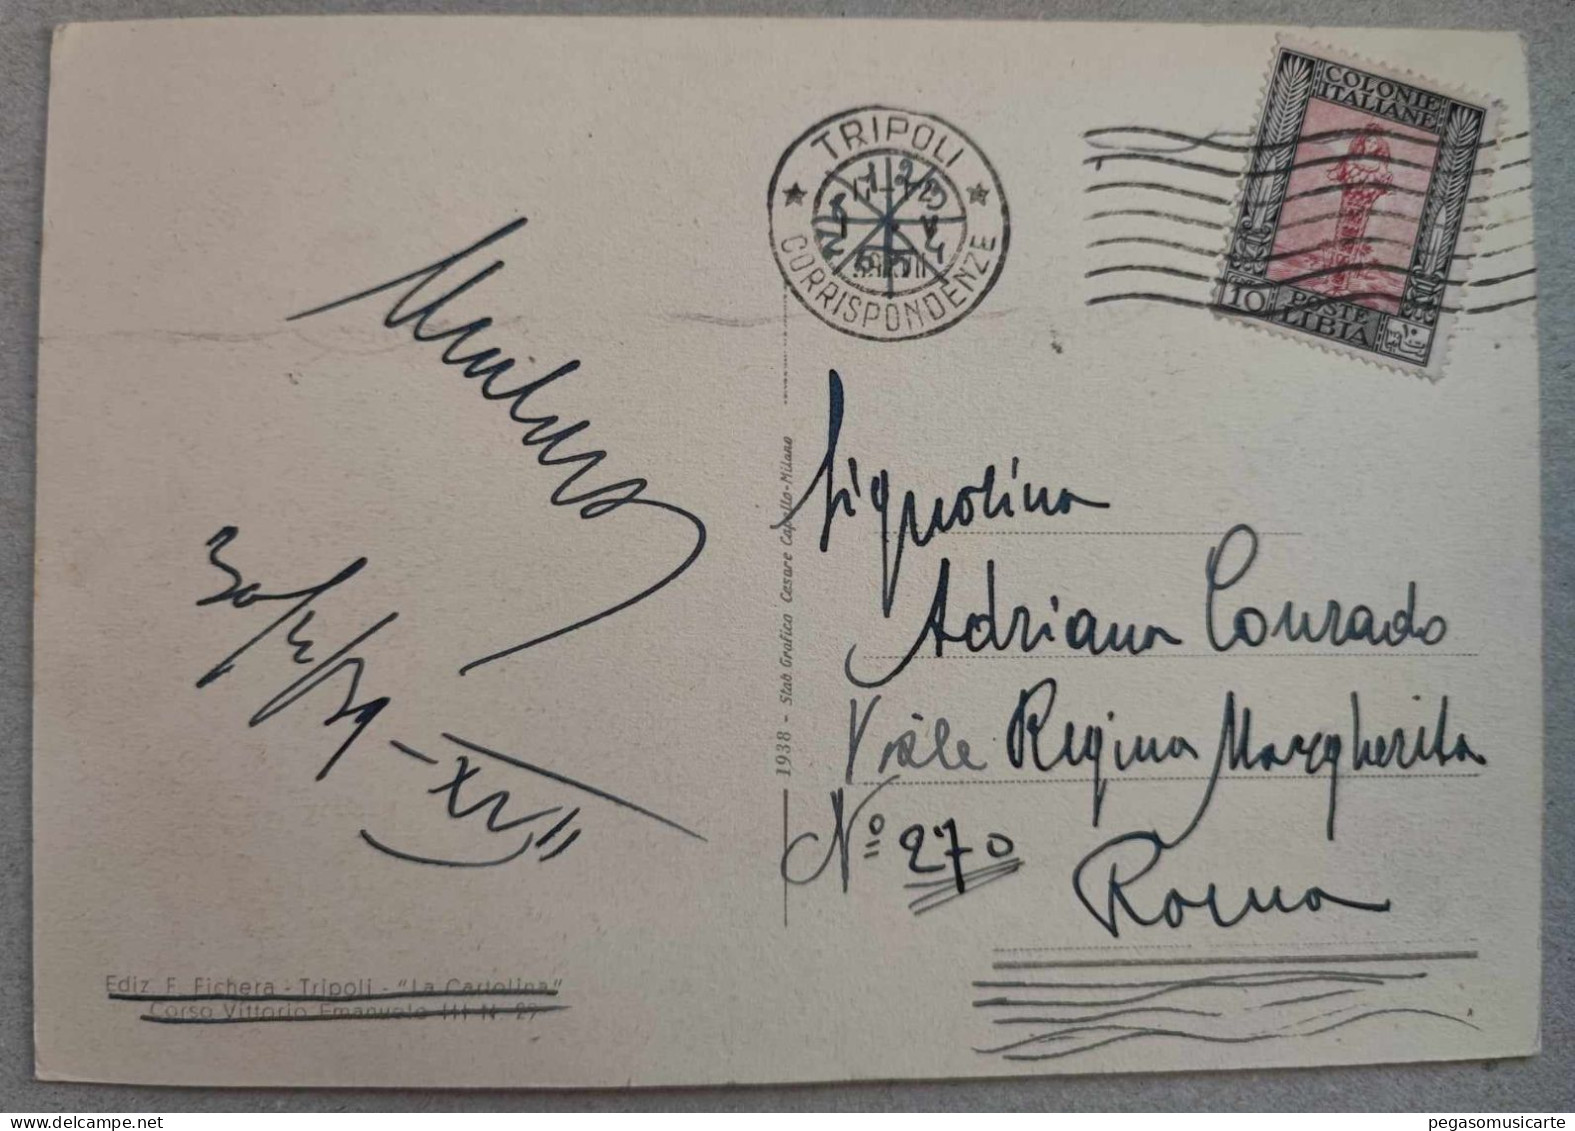 TRIPOLI
CORRISPONDENZE
COLONIE
ITALIANE
10 POSTE
LIBIA
Signorina
Adriana Conrado
Viale Regina Margherita
N° 270
Roma
1938 - Stab Grafico Cesare Capello-Milano
Ediz F. Fichera - Tripoli - "La Cartolina"
Corso Vittorio Emanuele III N. 27
pegasomusicarte
www.delcampe.net